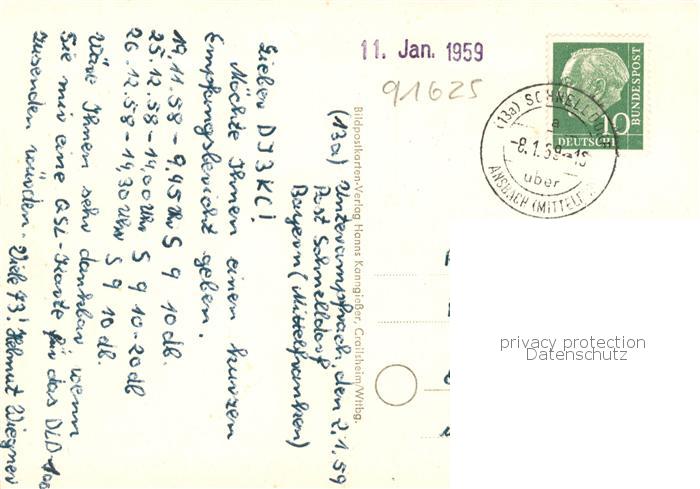 11. Jan. 1959
91625
DEUTSCHE BUNDESPOST
10
(13a) SCHNELLDORF
a
-8.1.59-18
über
ANSBACH (MITTELFR.)
(13a) Unterampfrach, den 2.1.59
Post Schnelldorf
Bayern (Mittelfranken)
Lieber DJ3KC!
Möchte Ihnen einen kurzen
Empfangsbericht geben.
19.11.58 - 9,45 Uhr S 9 10 db.
25.12.58 - 14,00 Uhr S 9 10-20 db
26.12.58 - 14,30 Uhr S 9 10 db.
Wäre Ihnen sehr dankbar, wenn
Sie mir eine QSL-Karte für das DLD-100
zusenden würden. Viele 73! Helmut Wiegner
Bildpostkarten-Verlag Hanns Kanngießer, Crailsheim/Wttbg.
privacy protection
Datenschutz